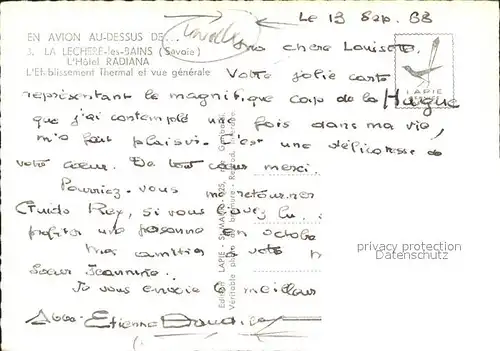 Le 13 Sep. 88
EN AVION AU-DESSUS DE...
3. LA LÉCHÈRE-les-BAINS (Savoie)
L'Hôtel RADIANA
L'Etablissement Thermal et vue générale
LAPIE
chère Louisette.
Votre jolie carte
représentant le magnifique cap de la Hague
que j'ai contemplé une fois dans ma vie,
m'a fait plaisir. C'est une délicatesse de
votre coeur. De tout coeur merci.
Pourriez-vous me retourner
Guido Rey, si vous l'avez lu.
profiter une personne en octobre
amitiés à votre
Soeur Jeannine.
Je vous envoie le meilleur
Abbé Etienne
Edition LAPIE - St-MAUR
Véritable photo au bromure - Reprod. interdite
privacy protection
Datenschutz